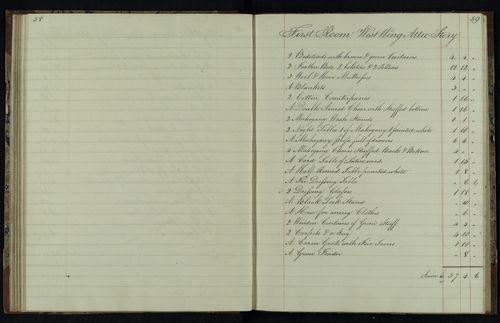 38
49
First Room West Wing Attic Story
2 Bedsteads with brown & green Curtains 4 4 -
2 Feather Beds 2 bolsters & 2 Pillows 12 12 -
3 Wool & Hair Mattresses 4 4 -
6 Blankets 3 - -
2 Cotton Counterpanes 1 10 -
A Double Armed Chair with Stuffed bottom 1 10 -
2 Mahogany Wash Stands 1 1 -
2 Night Tables 1 of Mahogany 1 painted white 1 10 -
A Mahogany Press full of drawers 6 6 -
4 Mahogany Chairs Stuffed Back & Bottom 4 - -
A Card Table of Satinwood 1 10 -
A Half Round Table painted white 1 5 -
A Fir Dressing Table - 6 6
2 Dressing Glasses 1 15 -
A Black Ink Stand - 10 -
A Horse for airing Cloths - 6 -
2 Window Curtains of Green Stuff 4 4 -
2 Carpets & a Rug 4 10 -
A Room Grate with Fire Irons 1 10 -
A Green Fender - 8 -
Sum £ 57 4 6